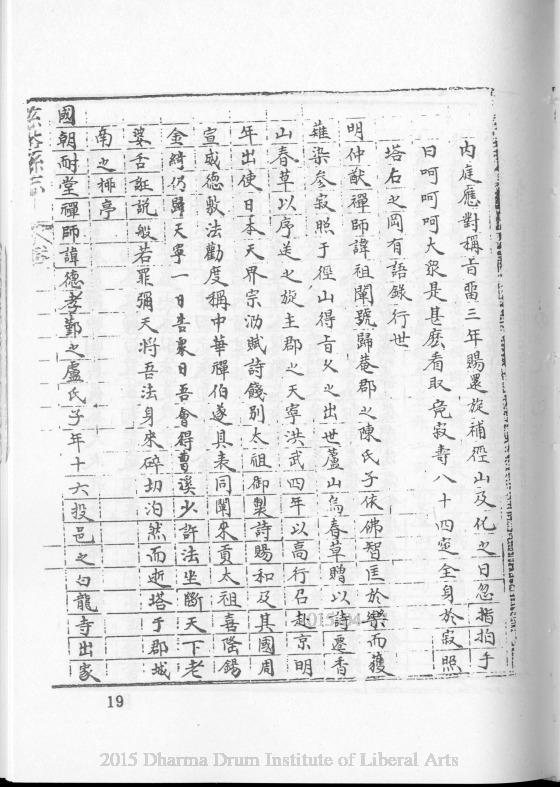 內庭應對稱旨留三年賜還旋補徑山及化之日忽指拍手
曰呵呵呵大衆是甚麽看取竟寂壽八十四窆全身於寂照
塔右之岡有語錄行世
明仲猷禪師諱祖闡號歸菴郡之陳氏子依佛智匡於樂而獲
薙染參寂照于徑山得旨久之出世蘆山烏春草贈以詩遷香
山春草以序送之旋主郡之天寧洪武四年以高行召赴京明
年出使日本天界宗泐賦詩餞別太祖御製詩賜和及其國周
宣威德敷法勸度稱中華禪伯遂具表同闡來貢太祖喜隆錫
金綺仍歸天寧一日告衆曰吾會得曹溪少許法坐斷天下老
婆舌誑説般若罪彌天將吾法身來碎切泊然而逝塔于郡城
南之柳亭
國朝耐堂禪師諱德孝鄞之盧氏子年十六投邑之白龍寺出家
19
2015 Dharma Drum Institute of Liberal Arts